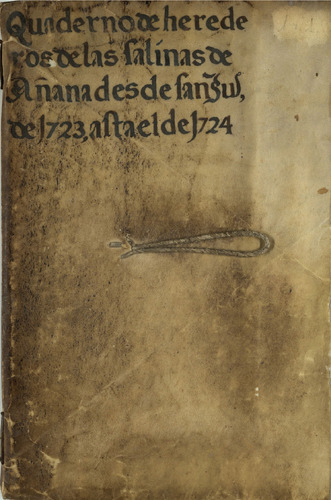 Quaderno de herede
ros de las salinas de
Añana desde san Ju,
de 1723, asta el de 1724